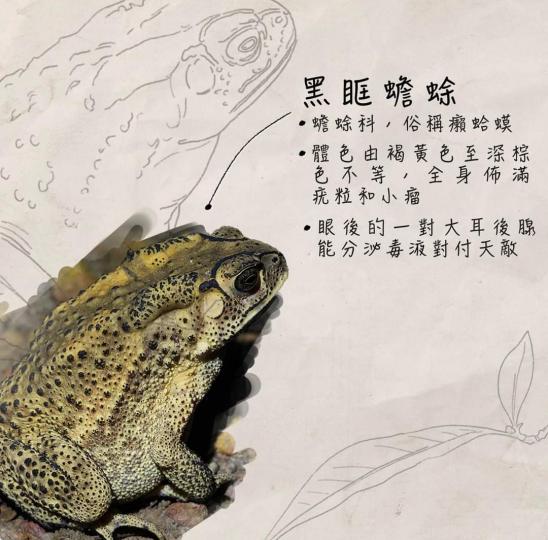 黑眶蟾蜍
•蟾蜍科，俗稱癩蛤蟆
•體色由褐黃色至深棕
色不等，全身佈滿
疣粒和小瘤
•眼後的一對大耳後腺
能分泌毒液對付天敵